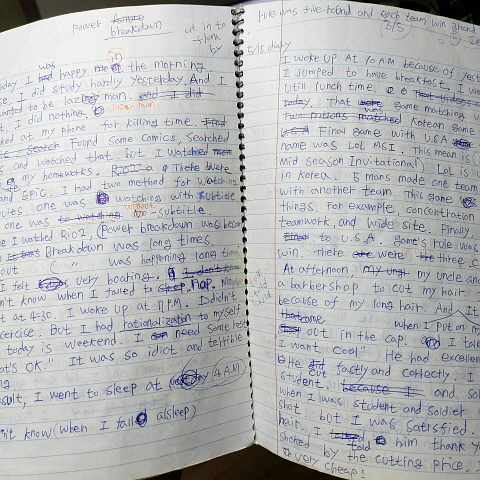 Power breakdown
cut in to
by
was in
day I happy the morning
se, I did study hardly yesterday. And I
wanted to be lazy man and I did
t, I did nothing lazy man
ked at my phone for killing time.
Found some comics, searched
s and watched that. But I watched
my homeworks. Rio2 There were
and EPIC. I had two method for watching
ovies one was watching with subtitle
one was to watching without subtitle.
e I watched Rio2, (Power breakdown was becam
was Breakdown was long times.
out was happening long time.
I felt very boaring. I don't
n't know when I failed to nap. Maybe
t at 4:30. I woke up at 11 P.M. I didn't
ercise. But I had rationalization to myself
today is weekend. I need some rest
at's ok." It was so idiot and terrible
ng
sult, I went to sleep at (4 A.M)
n't know (when I fall alsleep)
rule was five round and each team win 3 round
5/15
5/15 diary
I woke up At 10 A.M because of yest
I jumped to have breakfast, I wa
utill lunch time.
today, That was game matching w
Two nations matched korean game
Final game with U.S.A
name was LoL MSI. This mean is (
Mid season Invitational) LoL is
in korea. 5 mans made one team
with another team. This game
things. For example, concentration
teamwork, and wide site. Finally,
to U.S.A. game's rule was
win. There were three c
At afternoon, my uncle and
a barbershop to cut my hair
because of my long hair. And It
when I put on my
out in the cap. and I talk
I want cool" He had excellen
He cut fastly and correctly. I
student. because I and sol
when I was student and soldier
shot. but I was satrisfied.
hair. I told him thank yo
shoked by the cutting price. I
very cheap!